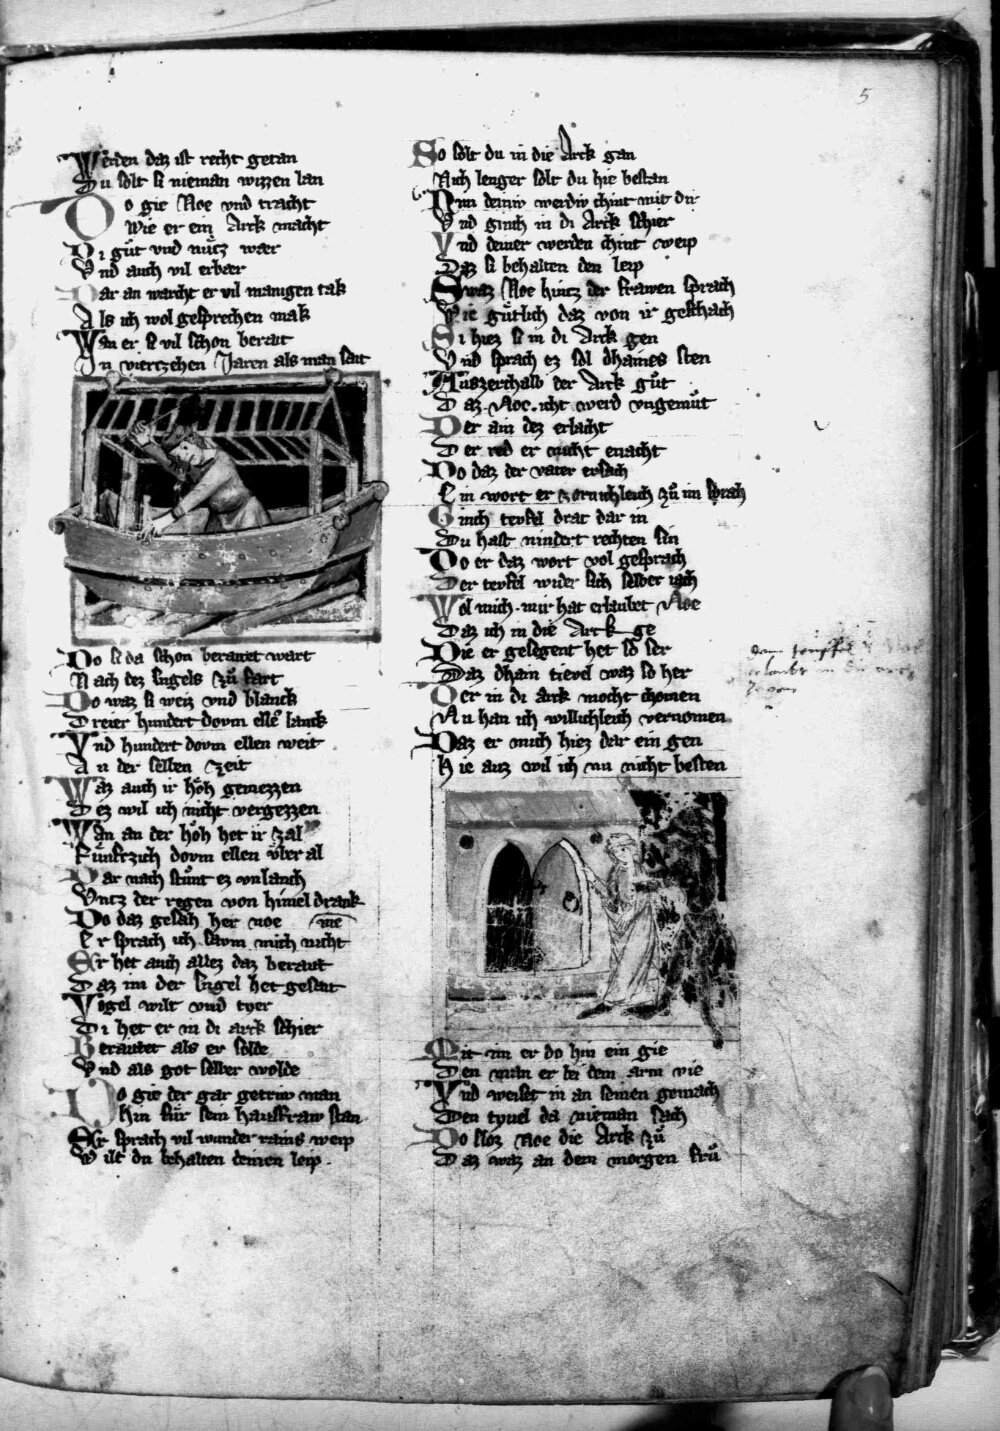 5
Werden daz ist recht getan
Du solt si nieman wizzen lan
Do gie Noe vnd tracht
Wie er ein Arck macht
Di gůt vnd nůtz wær
Vnd auch vil erbær
Dar an warcht er vil manigen tak
Als ich wol gesprechen mak
Wan er si vil schon berait
In viertzehen Jaren als man sait
Do si da schon beraitet wart
Nach dez Engels zů fart
Do waz si weiz vnd blanck
Dreier hundert dovm ellen lanck
Vnd hundert dovm ellen weit
An der selben zeit
Waz auch ir hoͤh gemezzen
Dez wil ich nicht vergezzen
Wan an der hoͤh het ir zal
Fůnftzich dovm ellen vͤber al
Dar nach stůnt ez vnlanch
Vntz der regen von himel drank
Do daz gesah her noe
Er sprach ich savm mich nicht me
Er het auch allez daz berait
Daz im der Engel het gesait
Vogel wilt vnd tyer
Di het er in di arck schier
Beraitet als er solde
Vnd als got selber wolde
Do gie der gar getriw man
Hin fůr sein hausfraw stan
Er sprach vil wunder rains weip
Wilt du behalten deinen leip
So solt du in die Arck gan
Nich lenger solt du hie bestan
Nim deiniv werdiv chint mit dir
Vnd ginch in di Arck schier
Vnd deiner werden chint weip
Daz si behalten den leip
Swaz Noe hintz der frawen sprach
Wie gůtlich daz von ir geschach
Si hiez si in di Arck gen
Vnd sprach ez sol dhaines sten
Auszerhalb der Arck gůt
Daz Noe icht werd vngemůt
Der ain dez erlacht
Der red er nicht enacht
Do daz der vater ersach
Ein wort er zornichleich zů im sprach
Ginch teyfel drat dar in
Du hast nindert rechten sin
Do er daz wort vol gesprach
Der teyfel wider sich selber iach
Wol mich mir hat erlaubet Noe
Daz ich in die Arck ge
Die er gesegent het so ser
Daz dhain tievel waz so her
Der in di arck mocht chomen
Nu han ich willichleich vernomen
Daz er mich hiez dar ein gen
Hie auz wil ich nu nicht besten
Mit im er do hin ein gie
Den man er bei dem arm vie
Vnd weiset in an seinen gemach
Den tyuel da nieman sach
Do sloz Noe die Arck zů
Daz waz an dem morgen frů